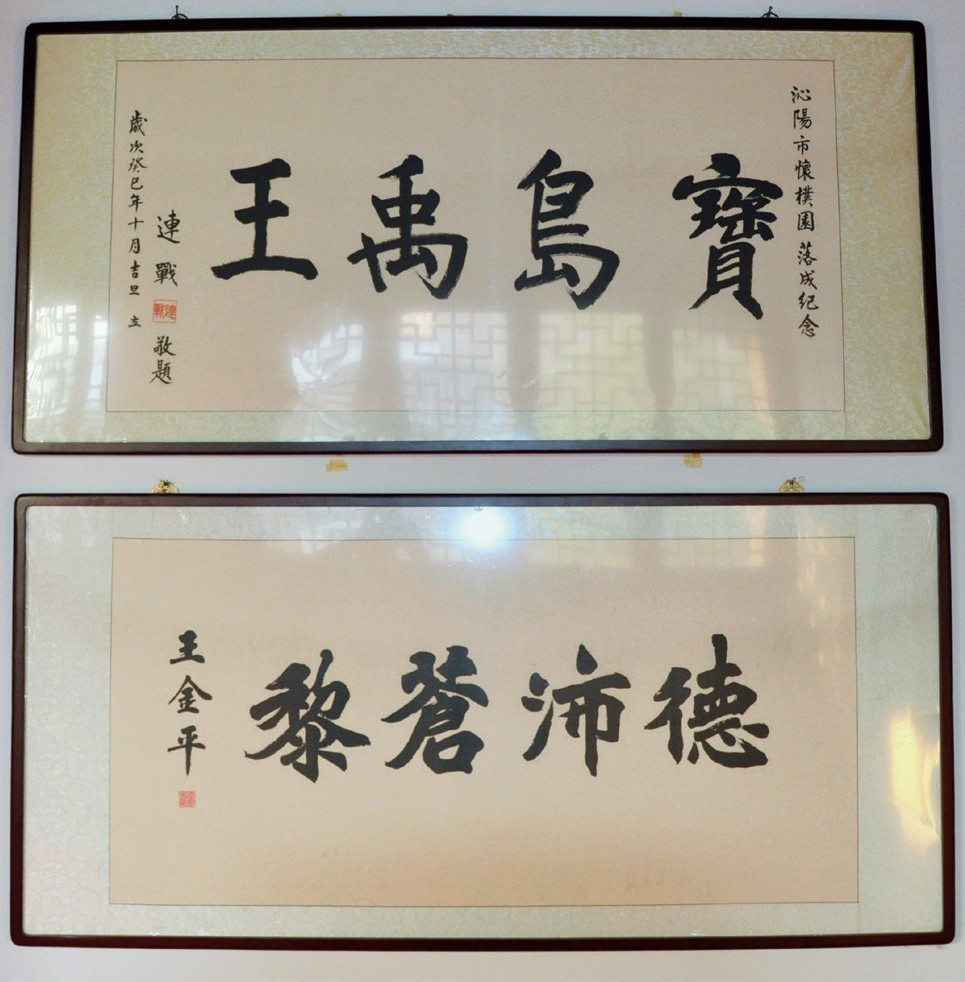 沁陽市懷樸園落成纪念
寶島禹王
連戰
連戰
敬題
歲次癸巳年十月吉旦 立
德沛蒼黎
王金平